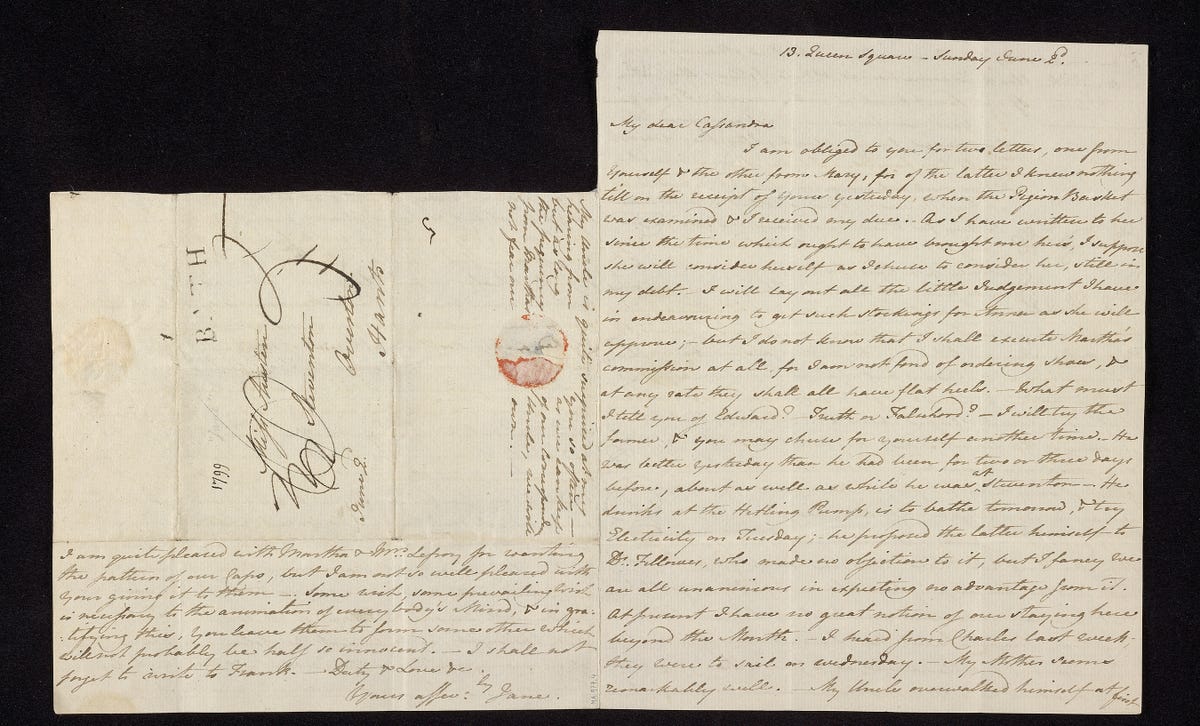 13. Queen Square - Sunday June 2d.
My dear Cassandra
I am obliged to you for two letters, one from
Yourself & the other from Mary, for of the latter I knew nothing
till on the receipt of Yours yesterday, when the Pigeon Basket
was examined & I received my due. - As I have written to her
since the time which ought to have brought me her's, I suppose
she will consider herself as I chuse to consider her, still in
my debt. - I will lay out all the little Judgement I have
in endeavouring to get such stockings for Anna as she will
approve; - but I do not know that I shall execute Martha's
commission at all, for I am not fond of ordering shoes, &
at any rate they shall all have flat heels. - What must
I tell you of Edward? - Truth or Falshood? - I will try the
former, & you may chuse for yourself another time. - He
was better yesterday than he had been for two or three days
before, about as well as while he was at Steventon - He
drinks at the Hetling Pump, is to bathe tomorrow, & try
Electricity on Tuesday; - he proposed the latter himself to
Dr. Fellowes, who made no objection to it, but I fancy we
are all unanimous in expecting no advantage from it.
At present I have no great notion of our staying here
beyond the Month. - I heard from Charles last week; -
they were to sail on wednesday. - My Mother seems
remarkably well. - My Uncle overwalked himself at first
BATH
Miss Austen
Steventon
Overton
Hants
June 2.
1799
My Uncle is quite surprised at my
hearing from you so often -
but as long as we can keep
the frequency of our correspond
from Martha's Uncle, we will
not fear our own. -
I am quite pleased with Martha & Mrs. Lefroy for wanting
the pattern of our Caps, but I am not so well pleased with
Your giving it to them -. Some wish, some prevailing Wish
is necessary to the animation of everybody's Mind, & in gra-
:tifying this, You leave them to form some other which
will not probably be half so innocent. - I shall not
forget to write to Frank. - Duty & Love &c.
Yours affec:ly Jane.